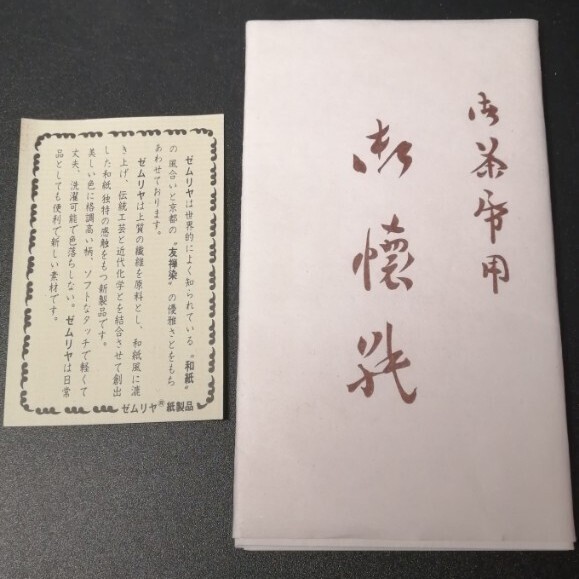 御茶席用
御懐紙
ゼムリヤは世界的によく知られている〝和紙〟
の風合いと京都の〝友禅染〟の優雅さとをもち
あわせております。
ゼムリヤは上質の繊維を原料とし、和紙風に漉
き上げ、伝統工芸と近代化学とを結合させて創出
した和紙独特の感触をもつ新製品です。
美しい色に格調高い柄、ソフトなタッチで軽くて
丈夫、洗濯可能で色落ちしない。ゼムリヤは日常
品としても便利で新しい素材です。
ゼムリヤ®紙製品